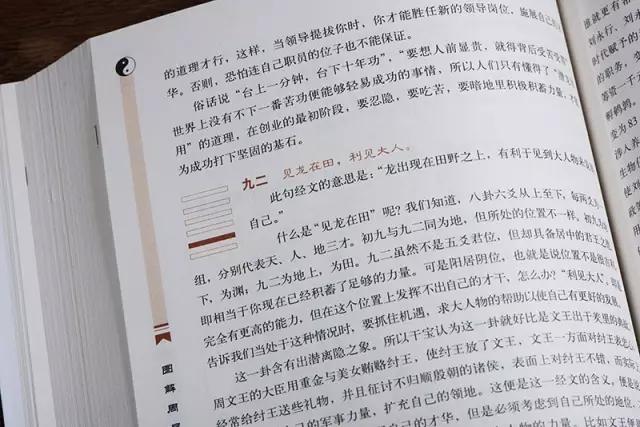 的道理才行，这样，当领导提拔你时，你才能胜任新的领导岗位，施展自己的
华，否则，恐怕连自己职员的位子也不能保证。
俗话说“台上一分钟，台下十年功”，“要想人前显贵，就得背后受苦受
世界上没有不下一番苦功便能够轻易成功的事情，所以人们只有懂得了“潜
用”的道理，在创业的最初阶段，要忍隐，要吃苦，要暗地里积极积蓄力量，
为成功打下坚固的基石。
九二 见龙在田，利见大人。
此句经文的意思是：“龙出现在田野之上，有利于见到大人物
自己。”
什么是“见龙在田”呢？我们知道，八卦六爻从上至下，每两爻
组，分别代表天、人、地三才。初九与九二同为地，但所处的位置不一样。初九为
下，为渊；九二为地上，为田。九二虽然不是五爻君位，但却具备居中的君王之
即相当于你现在已经积蓄了足够的力量。可是阳居阴位，也就是说位置不是很
完全有更高的能力，但在这个位置上发挥不出自己的才干，怎么办？“利见大人”，
告诉我们当处于这种情况时，要抓住机遇，求大人物的帮助以使自己有更好的发展。
这一卦含有出潜离隐之象。所以干宝认为这一卦就好比是文王出于羑里的
周文王的大臣用重金与美女贿赂纣王，使纣王放了文王，文王一方面对纣王
经常给纣王送些礼物，并且征讨不归顺殷朝的诸侯，表面上对纣王不错，而实际
己的军事力量，扩充自己的领地。这便是这一经文的含义，便是
己的才华，但是必须考虑到自己所处的地位，
比如文王便
图解周
谁就更有
刘永行、刘永
时代赋予的
的职务，变
等流一千
鹌鹑
变为 83
涉人养
生物
使刘
我